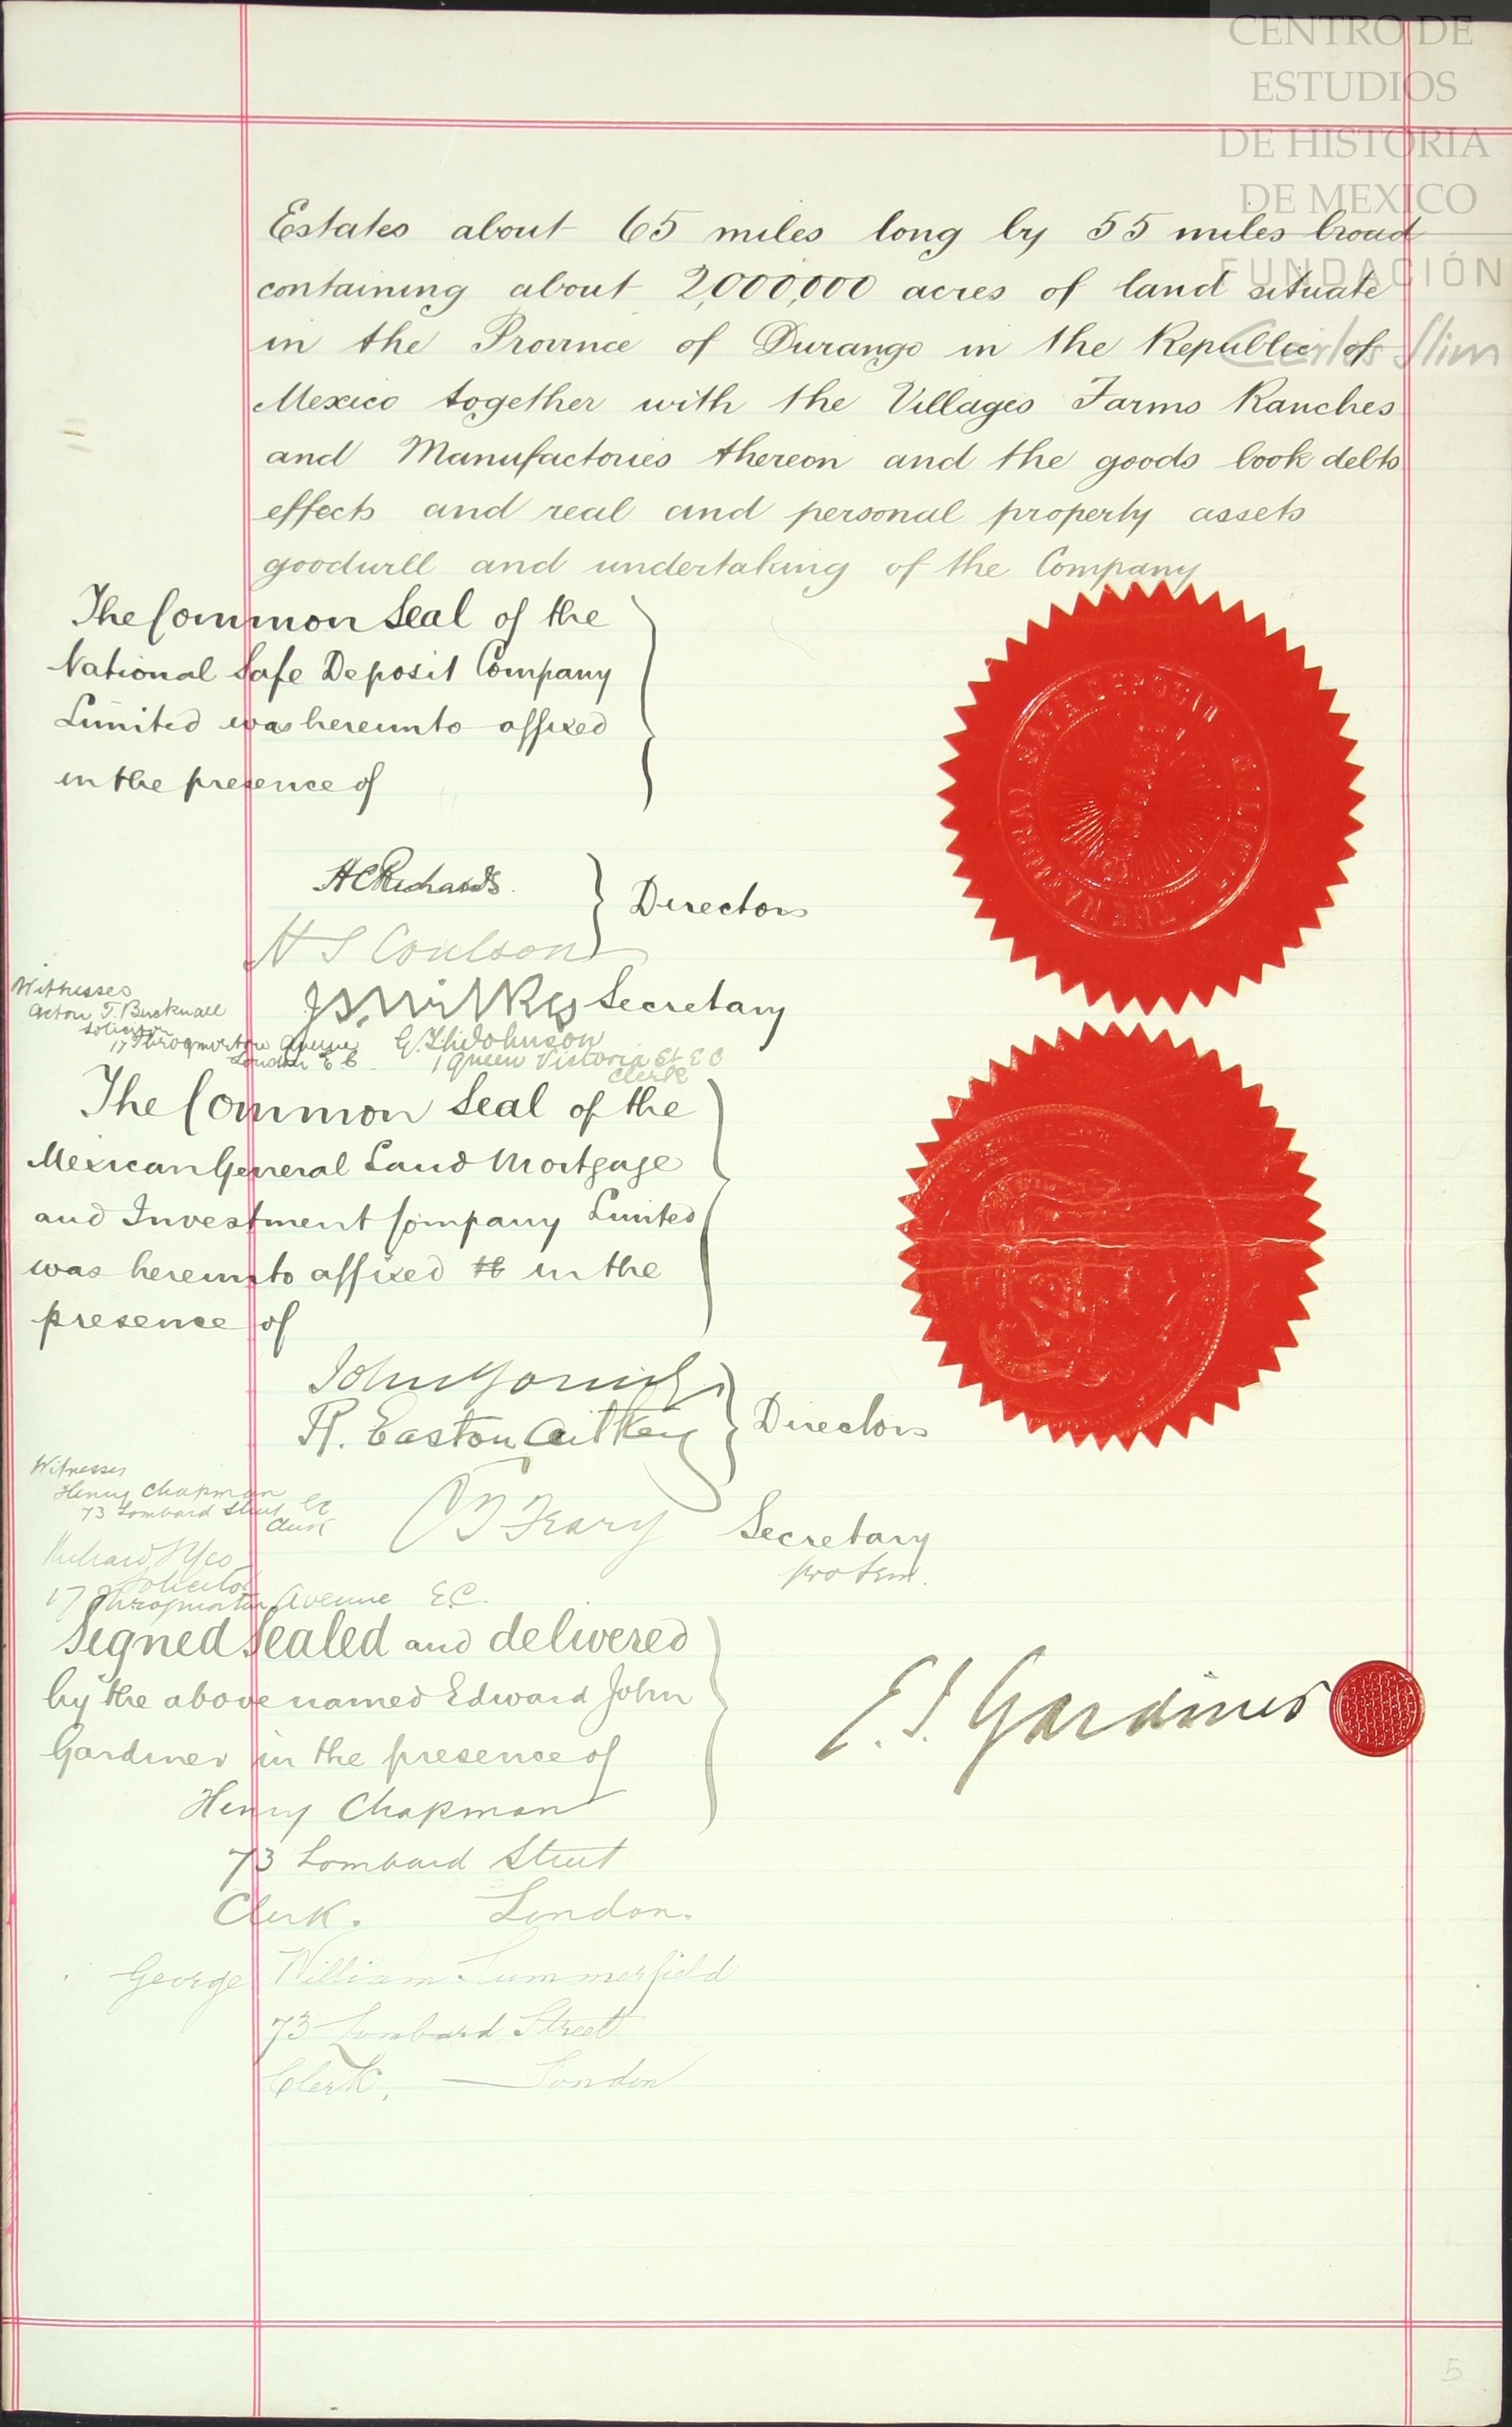 CENTRO DE
ESTUDIOS
DE HISTORIA
DE MEXICO
FUNDACIÓN
Carlos Slim
Estates about 65 miles long by 55 miles broad
containing about 2,000,000 acres of land situate
in the Province of Durango in the Republic of
Mexico together with the Villages Farms Ranches
and Manufactories thereon and the goods book debts
effects and real and personal property assets
goodwill and undertaking of the Company
The Common Seal of the
National Safe Deposit Company
Limited was hereunto affixed
in the presence of
H C Richards
Directors
H S Coulson
Secretary
Witnesses
Acton T. Bucknall
Solicitor
17 Throgmorton Avenue
London E.C.
Johnson
1 Queen Victoria St E C
Clerk
The Common Seal of the
Mexican General Land Mortgage
and Investment Company Limited
was hereunto affixed th in the
presence of
John
R. Easton Aitken
Directors
Witnesses
Henry Chapman
73 Lombard Street EC
Clerk
Secretary
pro tem.
Richard
Solicitor
17 Throgmorton Avenue E.C.
Signed Sealed and delivered
by the above named Edward John
Gardiner in the presence of
E. J. Gardiner
Henry Chapman
73 Lombard Street
Clerk. London.
George William Summerfield
73 Lombard Street
Clerk, — London
5